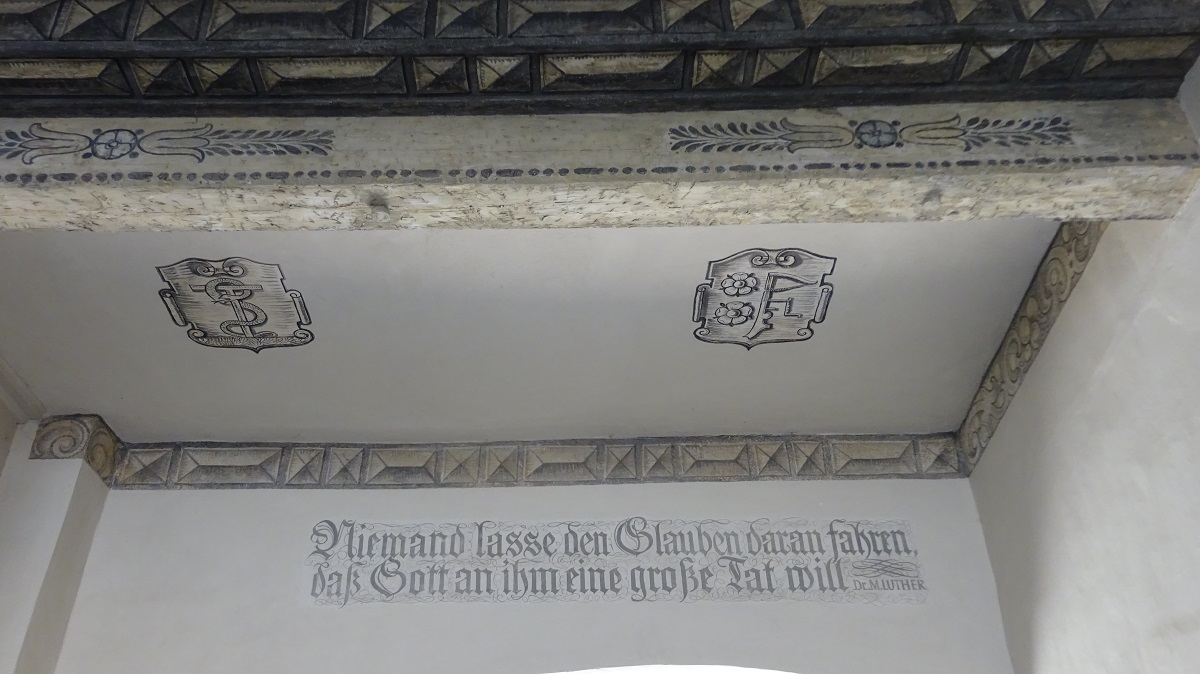 Niemand lasse den Glauben daran fahren,
daß Gott an ihm eine große Tat will
Dr. M. LUTHER